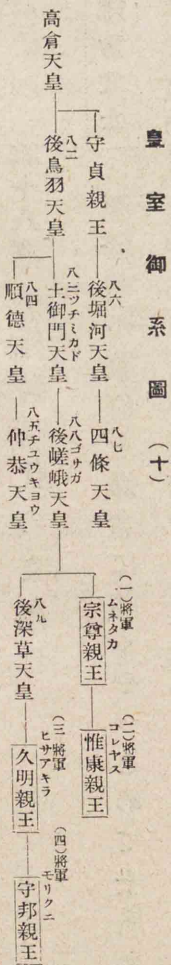 皇室御系圖(十)
高倉天皇
守貞親王
八六
後堀河天皇
八七
四條天皇
八二
後鳥羽天皇
八三ツチミカド
土御門天皇
八八ゴサガ
後嵯峨天皇
(一)將軍
ムネタカ
宗尊親王
(二)將軍
コレヤス
惟康親王
八九
後深草天皇
(三)將軍
ヒサアキラ
久明親王
(四)將軍
モリクニ
守邦親王
八四
順德天皇
八五チユウキヨウ
仲恭天皇